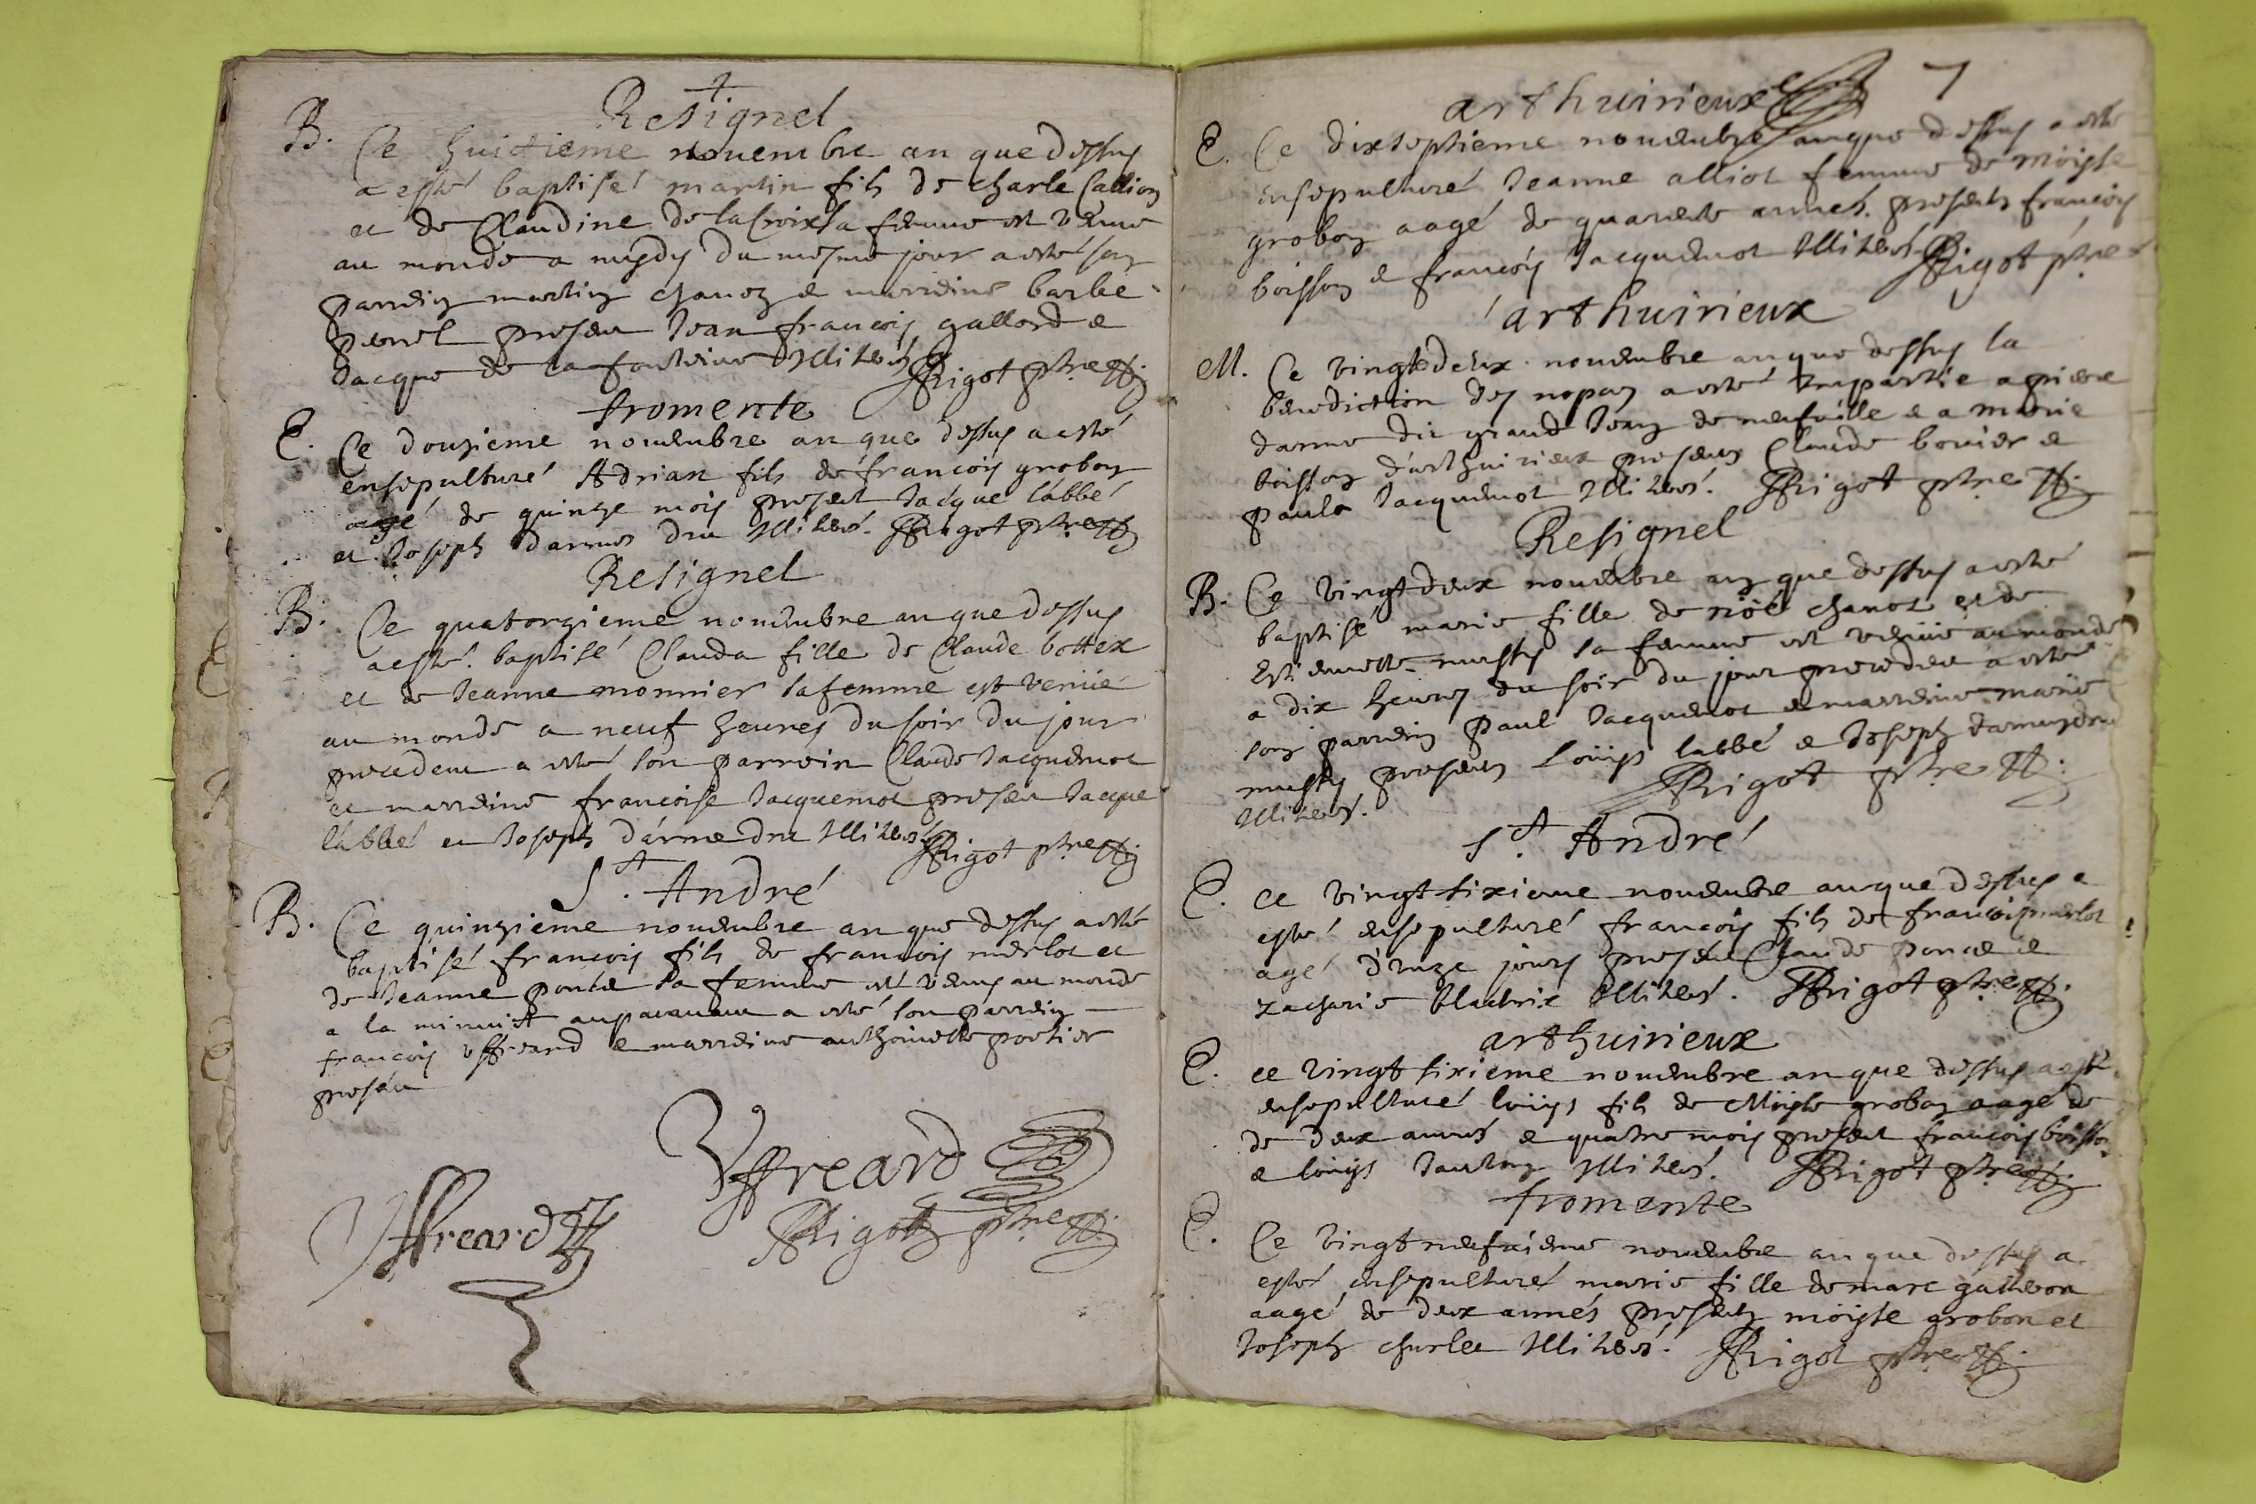 Resignel
B. Ce huictieme nouembre an que dessus
a esté baptisé martin fils de charle
et de Claudine de la Croix sa femme est venue
au monde a mydy du mesme jour a esté son
parrein martin chanoz e marreine barbe
present Jean francois gallord e
Jacque de la fonteine Illiterés Rigot ptre
fromente
E. Ce douzieme nouembre an que dessus a esté
ensepulturé Adrian fils de francois grobon
agé de quinze mois present Jacque labbé
et Joseph Illiterés. Rigot ptre
Resignel
B. Ce quatorzieme nouembre an que dessus
a esté baptisé Clauda fille de Claude bottex
et de Jeanne monnier sa femme est venüe
au monde a neuf heures du soir du jour
precedent a esté son parrein Claude Jacquemot
et marreine francoise Jacquemot present Jacque
labbé et Joseph Illiterés Rigot ptre
St. André
B. Ce quinzieme nouembre an que dessus a esté
baptisé francois fils de francois merlot et
de Jeanne poncet sa femme est venu au monde
a la minuit auparauant a esté son parrein
francois Uffreard e marreine anthoinette portier
present
Uffreard
Uffreard Rigot ptre
7
arthuirieux
E. Ce dixseptieme nouembre an que dessus a esté
ensepulturé Jeanne alliot femme de moyse
grobon aagé de quarente années presents francois
boisson e francois Jacquemot Illiterés Rigot ptre
arthuirieux
M. Ce vingtedeux nouembre an que dessus la
benediction des nopces a esté Impartie a pierre
darme dit grand Jean de neufuille e a marie
boisson d'arthuirieux presents Claude bouier e
paule Jacquemot Illiterés. Rigot ptre
Resignel
B. Ce vingtdeux nouembre an que dessus a esté
baptisé marie fille de noël chanot et de
Estiennette sa femme est venüe au monde
a dix heures du soir du jour precedent a esté
son parrein Paul Jacquemot e marreine marie
presents loüys labbé e Joseph
Illiterés. Rigot ptre
St. André
E. ce vingtsixieme nouembre an que dessus a
esté ensepulturé francois fils de francois merlot
agé d'unze jours present Claude poncet e
zacharie Illiterés. Rigot ptre
arthuirieux
E. ce vingtsixieme nouembre an que dessus a esté
ensepulturé loüys fils de Moyse grobon aagé de
de deux années e quatre mois present francois boisson
e loüys Illiterés. Rigot ptre
fromente
E. Ce vingtneufuieme nouembre an que dessus a
esté ensepulturé marie fille de marc
aagé de deux années presents moyse grobon et
Joseph Illiterés. Rigot ptre